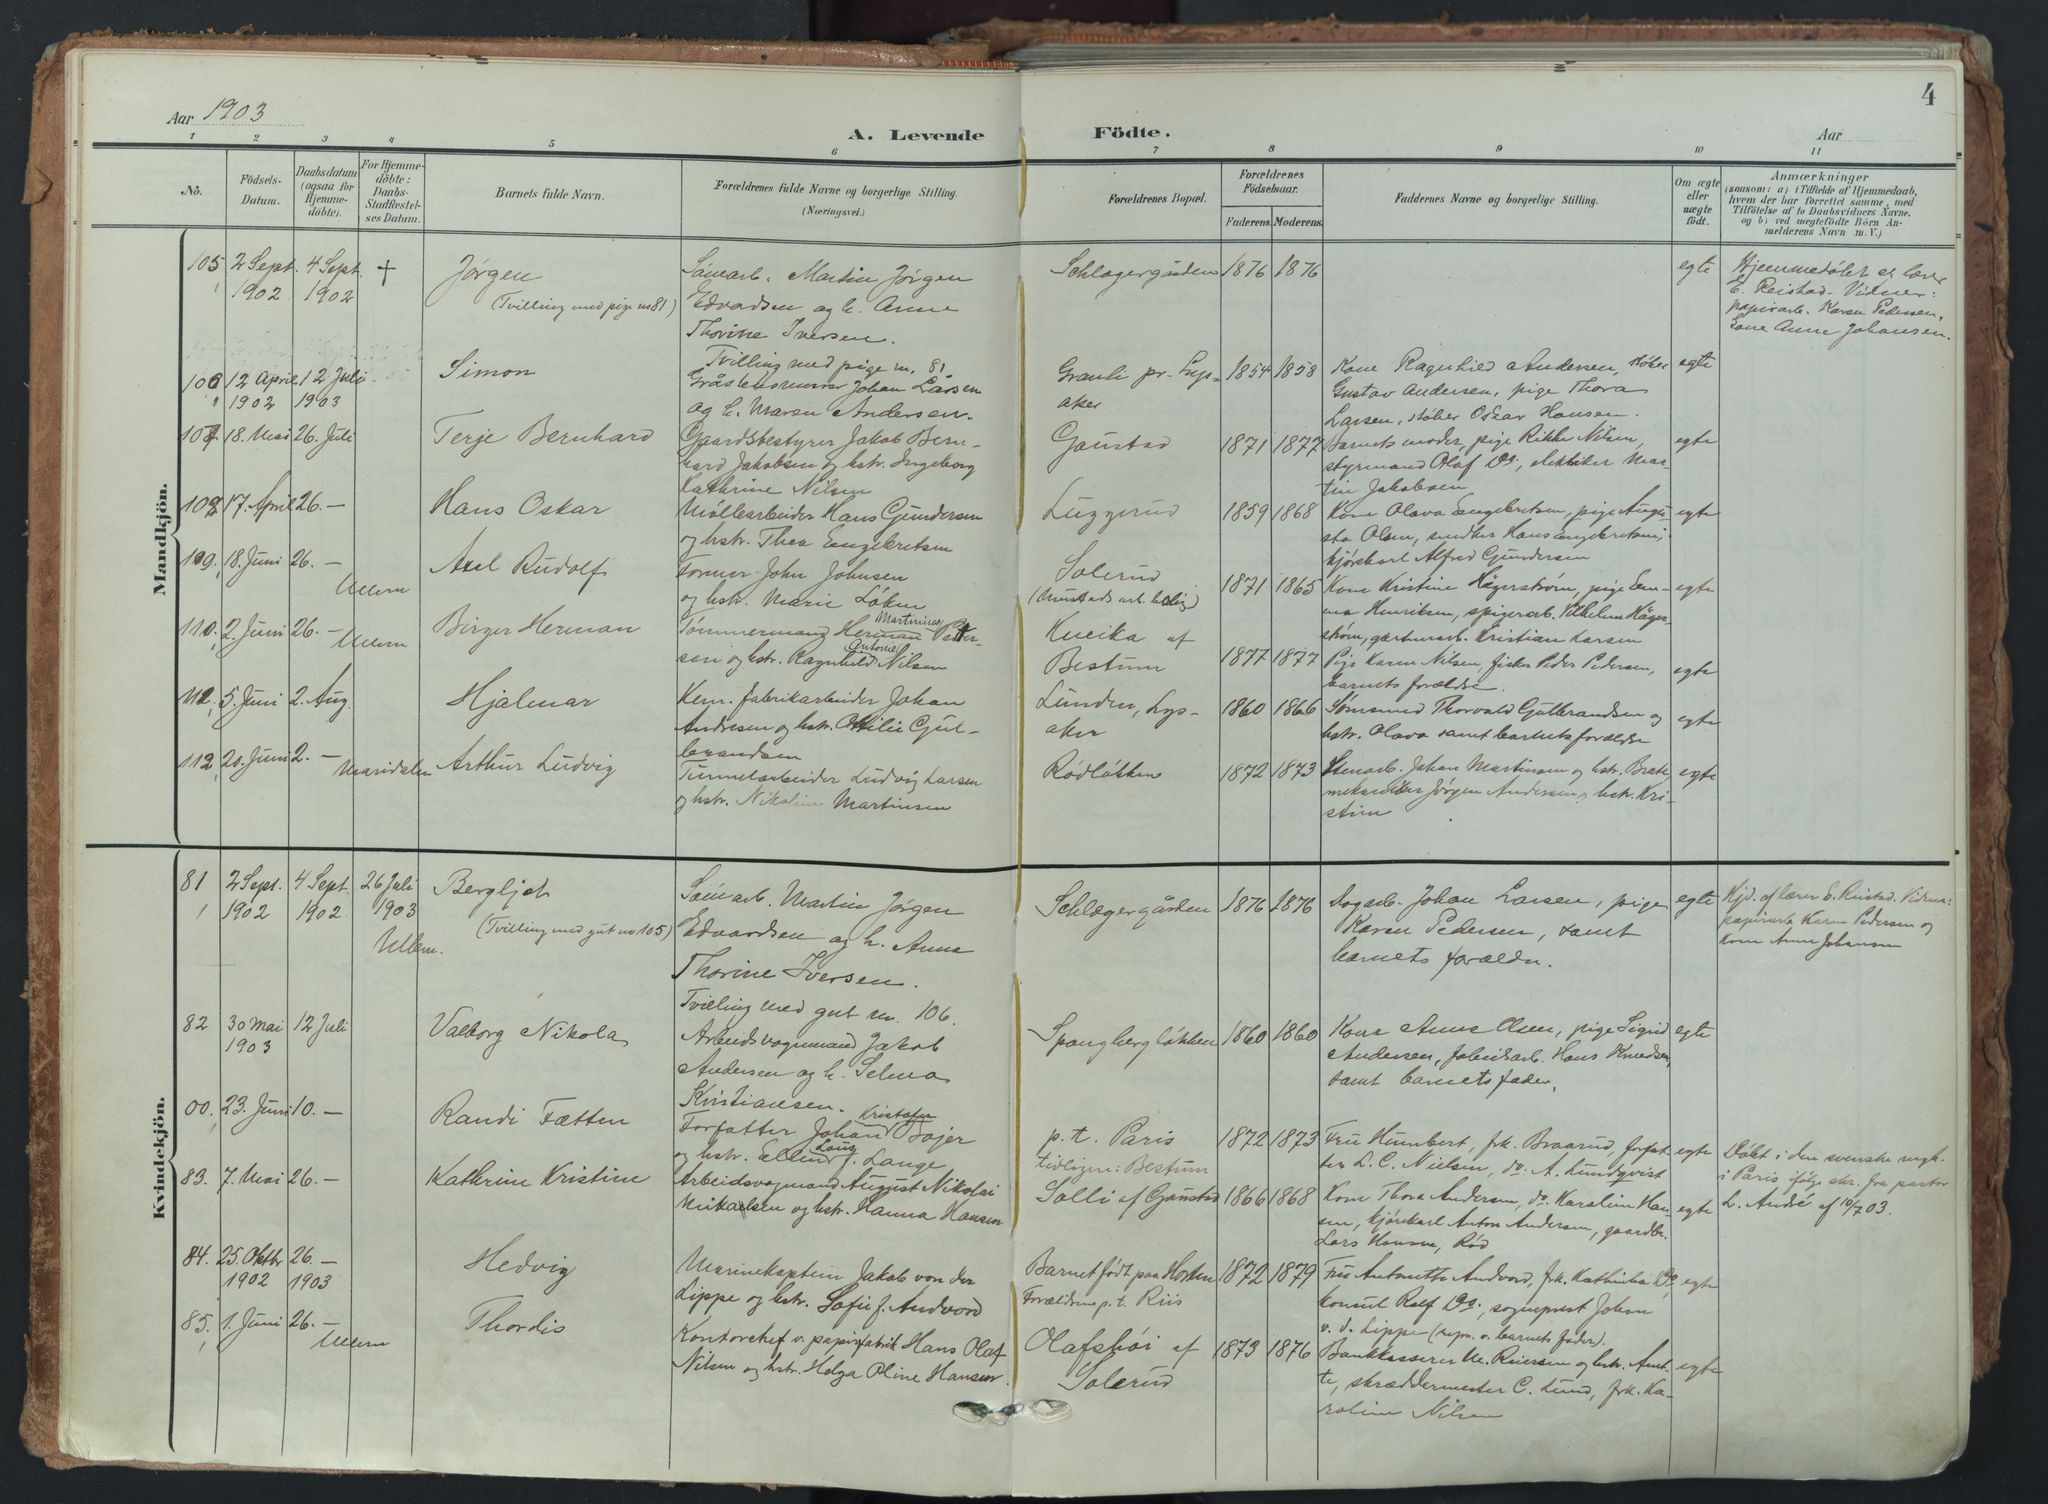 4
Aar 1903
A. Levende Födte.
Aar
1 2 3 4 5 6 7 8 9 10 11
No.
Födsels-Datum.
Daabsdatum (ogsaa for Hjemmedöbte).
For Hjemmedöbte: Daabs-Stadfæstelses Datum.
Barnets fulde Navn.
Forældrenes fulde Navne og borgerlige Stilling.
(Næringsvei.)
Forældrenes Bopæl.
Forældrenes Födselsaar.
Faderens. Moderens.
Faddernes Navne og borgerlige Stilling.
Om ægte eller uægte födt.
Anmærkninger
(saasom: a) i Tilfælde af Hjemmedaab, hvem der har forrettet samme, med Tilföielse af to Daabsvidners Navne, og b) ved uægtefödte Börn Anmelderens Navn m. V.)
Mandkjön.
105 2 Sept. 1902 4 Sept. 1902 +
Jørgen
(Tvilling med pige no 81)
Martin Jørgen
Edvardsen og h. Anne
Thorine Iversen.
Tvilling med pige nr. 81
Schlagergården 1876 1876
egte
Hjemmedøbt af lærer
E. Reistad. Vidner:
papirarb. Karen Pedersen,
Kone Anne Johansen.
106 12 April 1902 12 Juli 1903
Simon
Johan Larsen
og h. Maren Andersen.
Granli pr. Lysaker
1854 1858
Kone Ragnhild Andersen, støber
Gustav Andersen, pige Thora
Larsen, støber Oskar Hansen.
egte
107 18. Mai 26. Juli
Terje Bernhard
Gaardsbestyrer Jakob Bern-
hard Jakobsen og hstr. Ingeborg
Kathrine Nilsen
Gaustad 1871 1877
Barnets moder, pige Rikke Nilsen,
styrmand Olaf Do, elektriker Mar-
tin Jakobsen
egte
108 17. April 26. —
Hans Oskar
Møllearbeider Hans Gundersen
og hstr. Thea Engebretsen
Luggerud 1859 1868
Kone Olava Engebretsen, pige Augu-
sta Olsen, Hans Engebretsen,
kjørekarl Alfred Gundersen
egte
109. 18. Juni 26. —
Ullern
Axel Rudolf
Former John Johnsen
og hstr. Marie Løken
Solerud
1871 1865
Kone Kristine Hägerstrøm, pige Em-
ma Henriksen, spigerarb. Vilhelm Häger-
strøm, gartnerarb. Kristian Larsen
egte
110. 2. Juni 26. —
Ullern
Birger Herman
Martinus
Tømmermand Herman Peder-
Antonie
sen og hstr. Ragnhild Nilsen
Kneika af
Bestum
1877 1877
Pige Karen Nilsen, fisker Peder Pedersen,
barnets forældre.
egte
111. 5. Juni 2. Aug.
Hjalmar
Kem. fabrikarbeider Johan
Andresen og hstr. Ottilie Gul-
brandsen
Lunden, Lys-
aker
1860 1866
Thorvald Gulbrandsen og
hstr. Olava samt barnets forældre
egte
112 20. Juni 2. —
Maridalen
Arthur Ludvig
Tunnelarbeider Ludvig Larsen
og hstr. Nikoline Martinsen
Rødløkken 1872 1873
Stenarb. Johan Martinsen og hstr. Beate,
Jørgen Andersen, hstr. Kri-
stine
egte
Kvindekjön.
81 2 Sept. 1902 4 Sept. 1902 26 Juli 1903 Ullern.
Bergljot
(Tvilling med gut no 105)
Martin Jørgen
Edvardsen og h. Anna
Thorine Iversen.
Tvilling med gut nr. 106.
Schlægergården 1876 1876
Johan Larsen, pige
Karen Pedersen, samt
barnets forældre.
egte
Hjd. af lærer E. Reistad. Vidner:
papirarb. Karen Pedersen og
Kone Anne Johansen
82 30 Mai 1903 12 Juli
Valborg Nikola
Arbeidsvognmand Jakob
Andersen og h. Selma
Kristiansen.
Spangbergløkken 1860 1860
Kone Anne Olsen, pige Sigrid
Andersen, fabrikarb. Hans Knudsen,
samt barnets fader.
egte
00, 23. Juni 10. —
Randi Fætten
Kristofer
Forfatter Johan Bojer
og hstr. Ellen f. Lange
p. t. Paris
tidligere: Bestum
1872 1873
Fru Humbert, frk. Braarud, forfat-
ter L. C. Nielsen, do. A. Lundqvist
egte
Døbt i den svenske
i Paris ifølge skr. fra pastor
L. André af 10/7 03.
83. 7. Mai 26. —
Kathrine Kristine
Arbeidsvogmand August Nikolai
Mikaelsen og hstr. Hanna Hansen
Solli af Gaustad 1866 1868
Kone Thora Andersen, do. Karoline Han-
sen, kjørekarl Anton Andersen, gaardbr.
Lars Hansen, Rød
egte
84. 25. Oktbr 1902 26. — 1903
Hedvig
Marinekaptein Jakob von der
Lippe og hstr. Sofie f. Andvord
Barnet født paa Horten
Forældrene p. t. Riis
1872 1879
Fru Antonette Andvord, frk. Kathinka Do,
konsul Rolf Do., sogneprest Johan
v. d. Lippe (repr. v. barnets fader).
egte
85. 1. Juni 26. —
Ullern
Thordis
Kontorchef v. papirfabrik Hans Olaf
Nilsen og hstr. Helga Oline Hansen.
Olafshøi af
Solerud
1873 1876
Bankkasserer M. Reiersen og hstr. Anet-
te, skræddermester C. Lund, frk. Ka-
roline Nilsen
egte